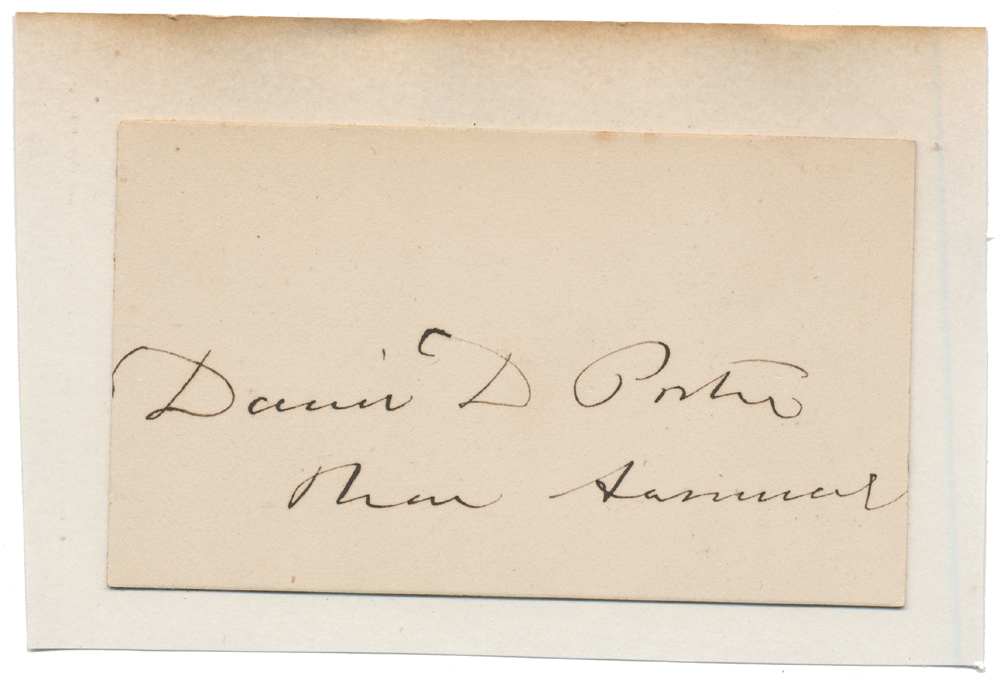 David D Porter
Rear Admiral